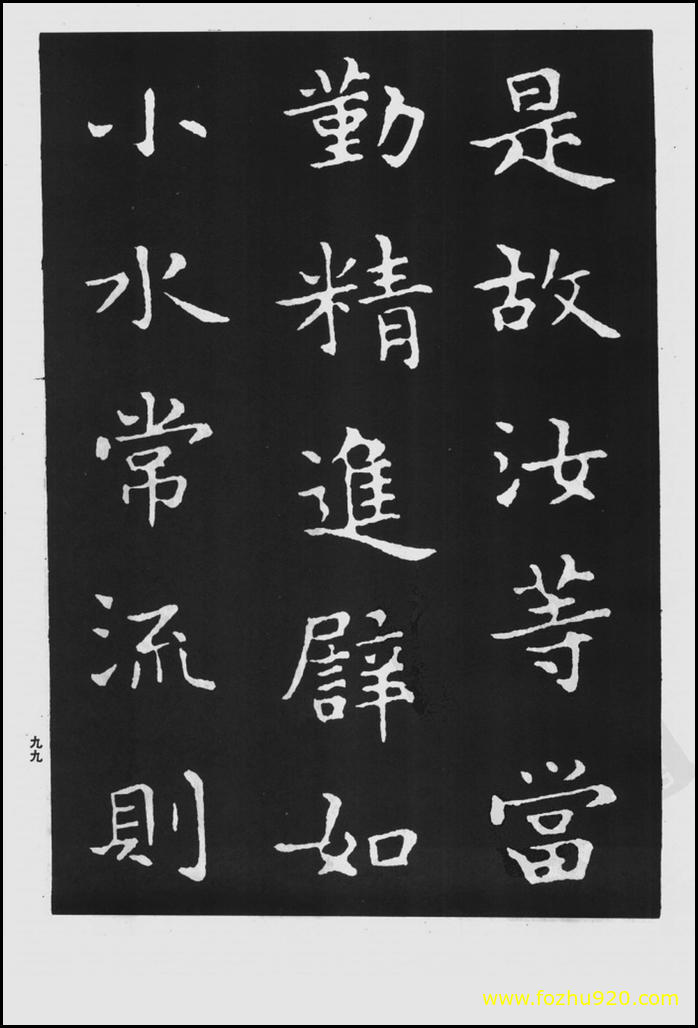 是故汝等當
勤精進譬如
小水常流則
九九
www.fozhu920.com